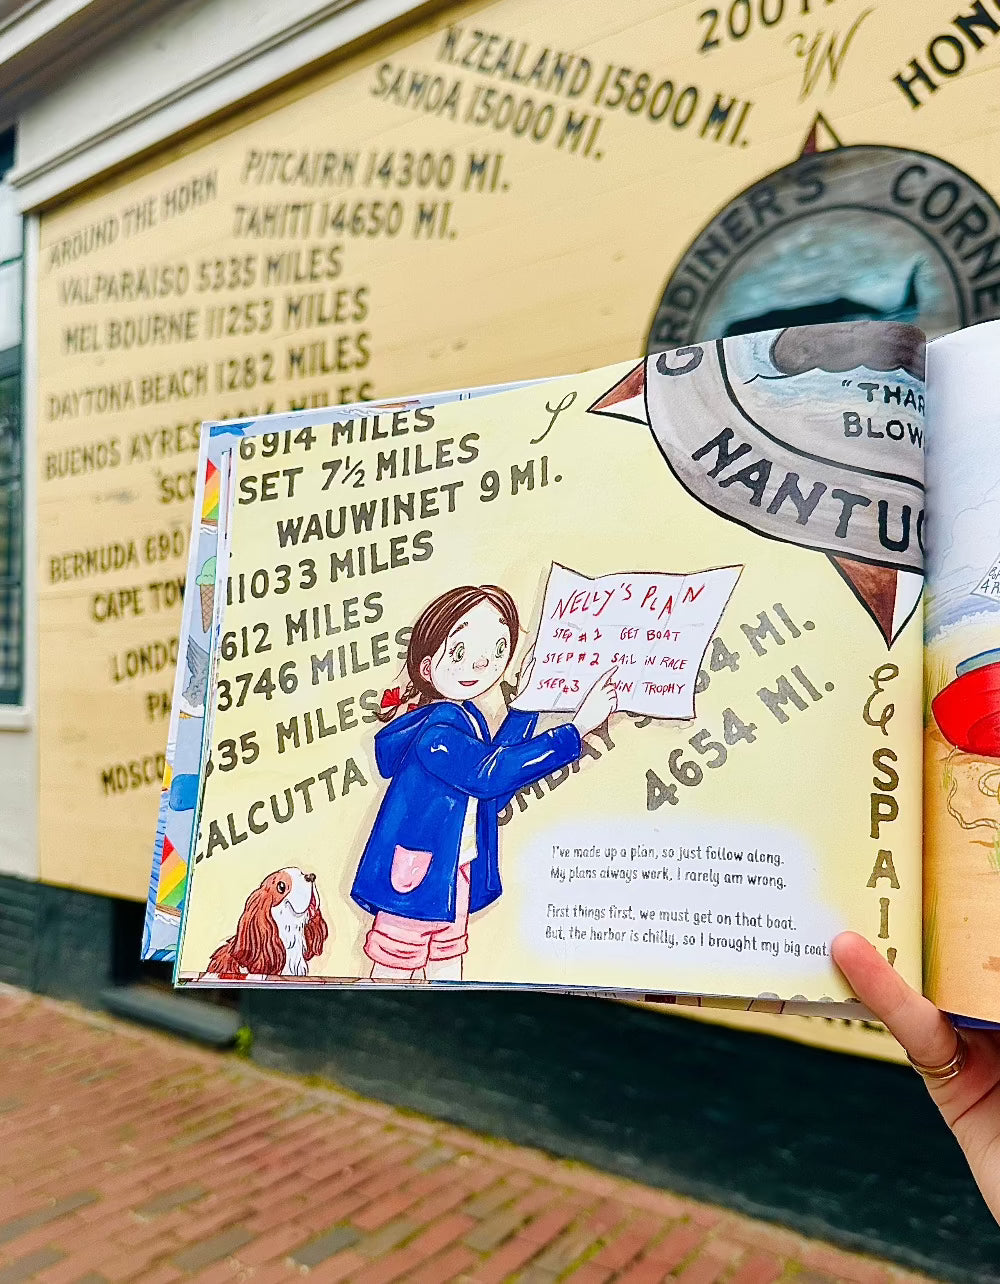 200
HON
N.ZEALAND 15800 MI.
SAMOA 15000 MI.
PITCAIRN 14300 MI.
TAHITI 14650 MI.
AROUND THE HORN
VALPARAISO 5335 MILES
MELBOURNE 11253 MILES
DAYTONA BEACH 1282 MILES
BUENOS AYRES MILES
BERMUDA 690
CAPE TOW
LONDO
PA
MOSCO
RDINER'S CORNE
6914 MILES
SET 7½ MILES
WAUWINET 9 MI.
11033 MILES
612 MILES
3746 MILES
335 MILES
CALCUTTA
OMBAY
4 MI.
4654 MI.
S
G
"THAR
BLOW
NANTUC
E
SPAI
NELLY'S PLAN
STEP #1 GET BOAT
STEP #2 SAIL IN RACE
STEP #3 WIN TROPHY
I've made up a plan, so just follow along.
My plans always work, I rarely am wrong.
First things first, we must get on that boat.
But, the harbor is chilly, so I brought my big coat.